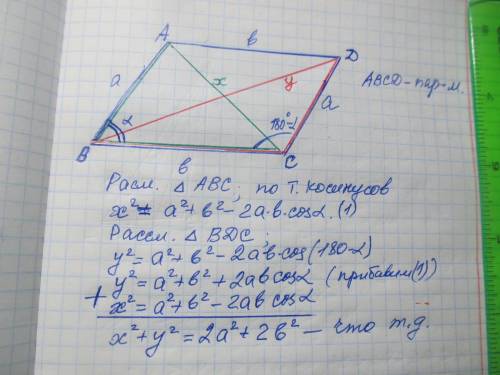 A
в
D
a
x
y
a
ABCD - пар-м.
α
180°-α
B
в
C
Расм. △ ABC; по т. косинусов
x² = a² + в² - 2a·в·cosα. (1)
Рассм. △ BDC:
y² = a² + в² - 2aв·cos(180-α)
y² = a² + в² + 2aв cosα (прибавим (1))
+ x² = a² + в² - 2aв cosα
x² + y² = 2a² + 2в² - что т.д.